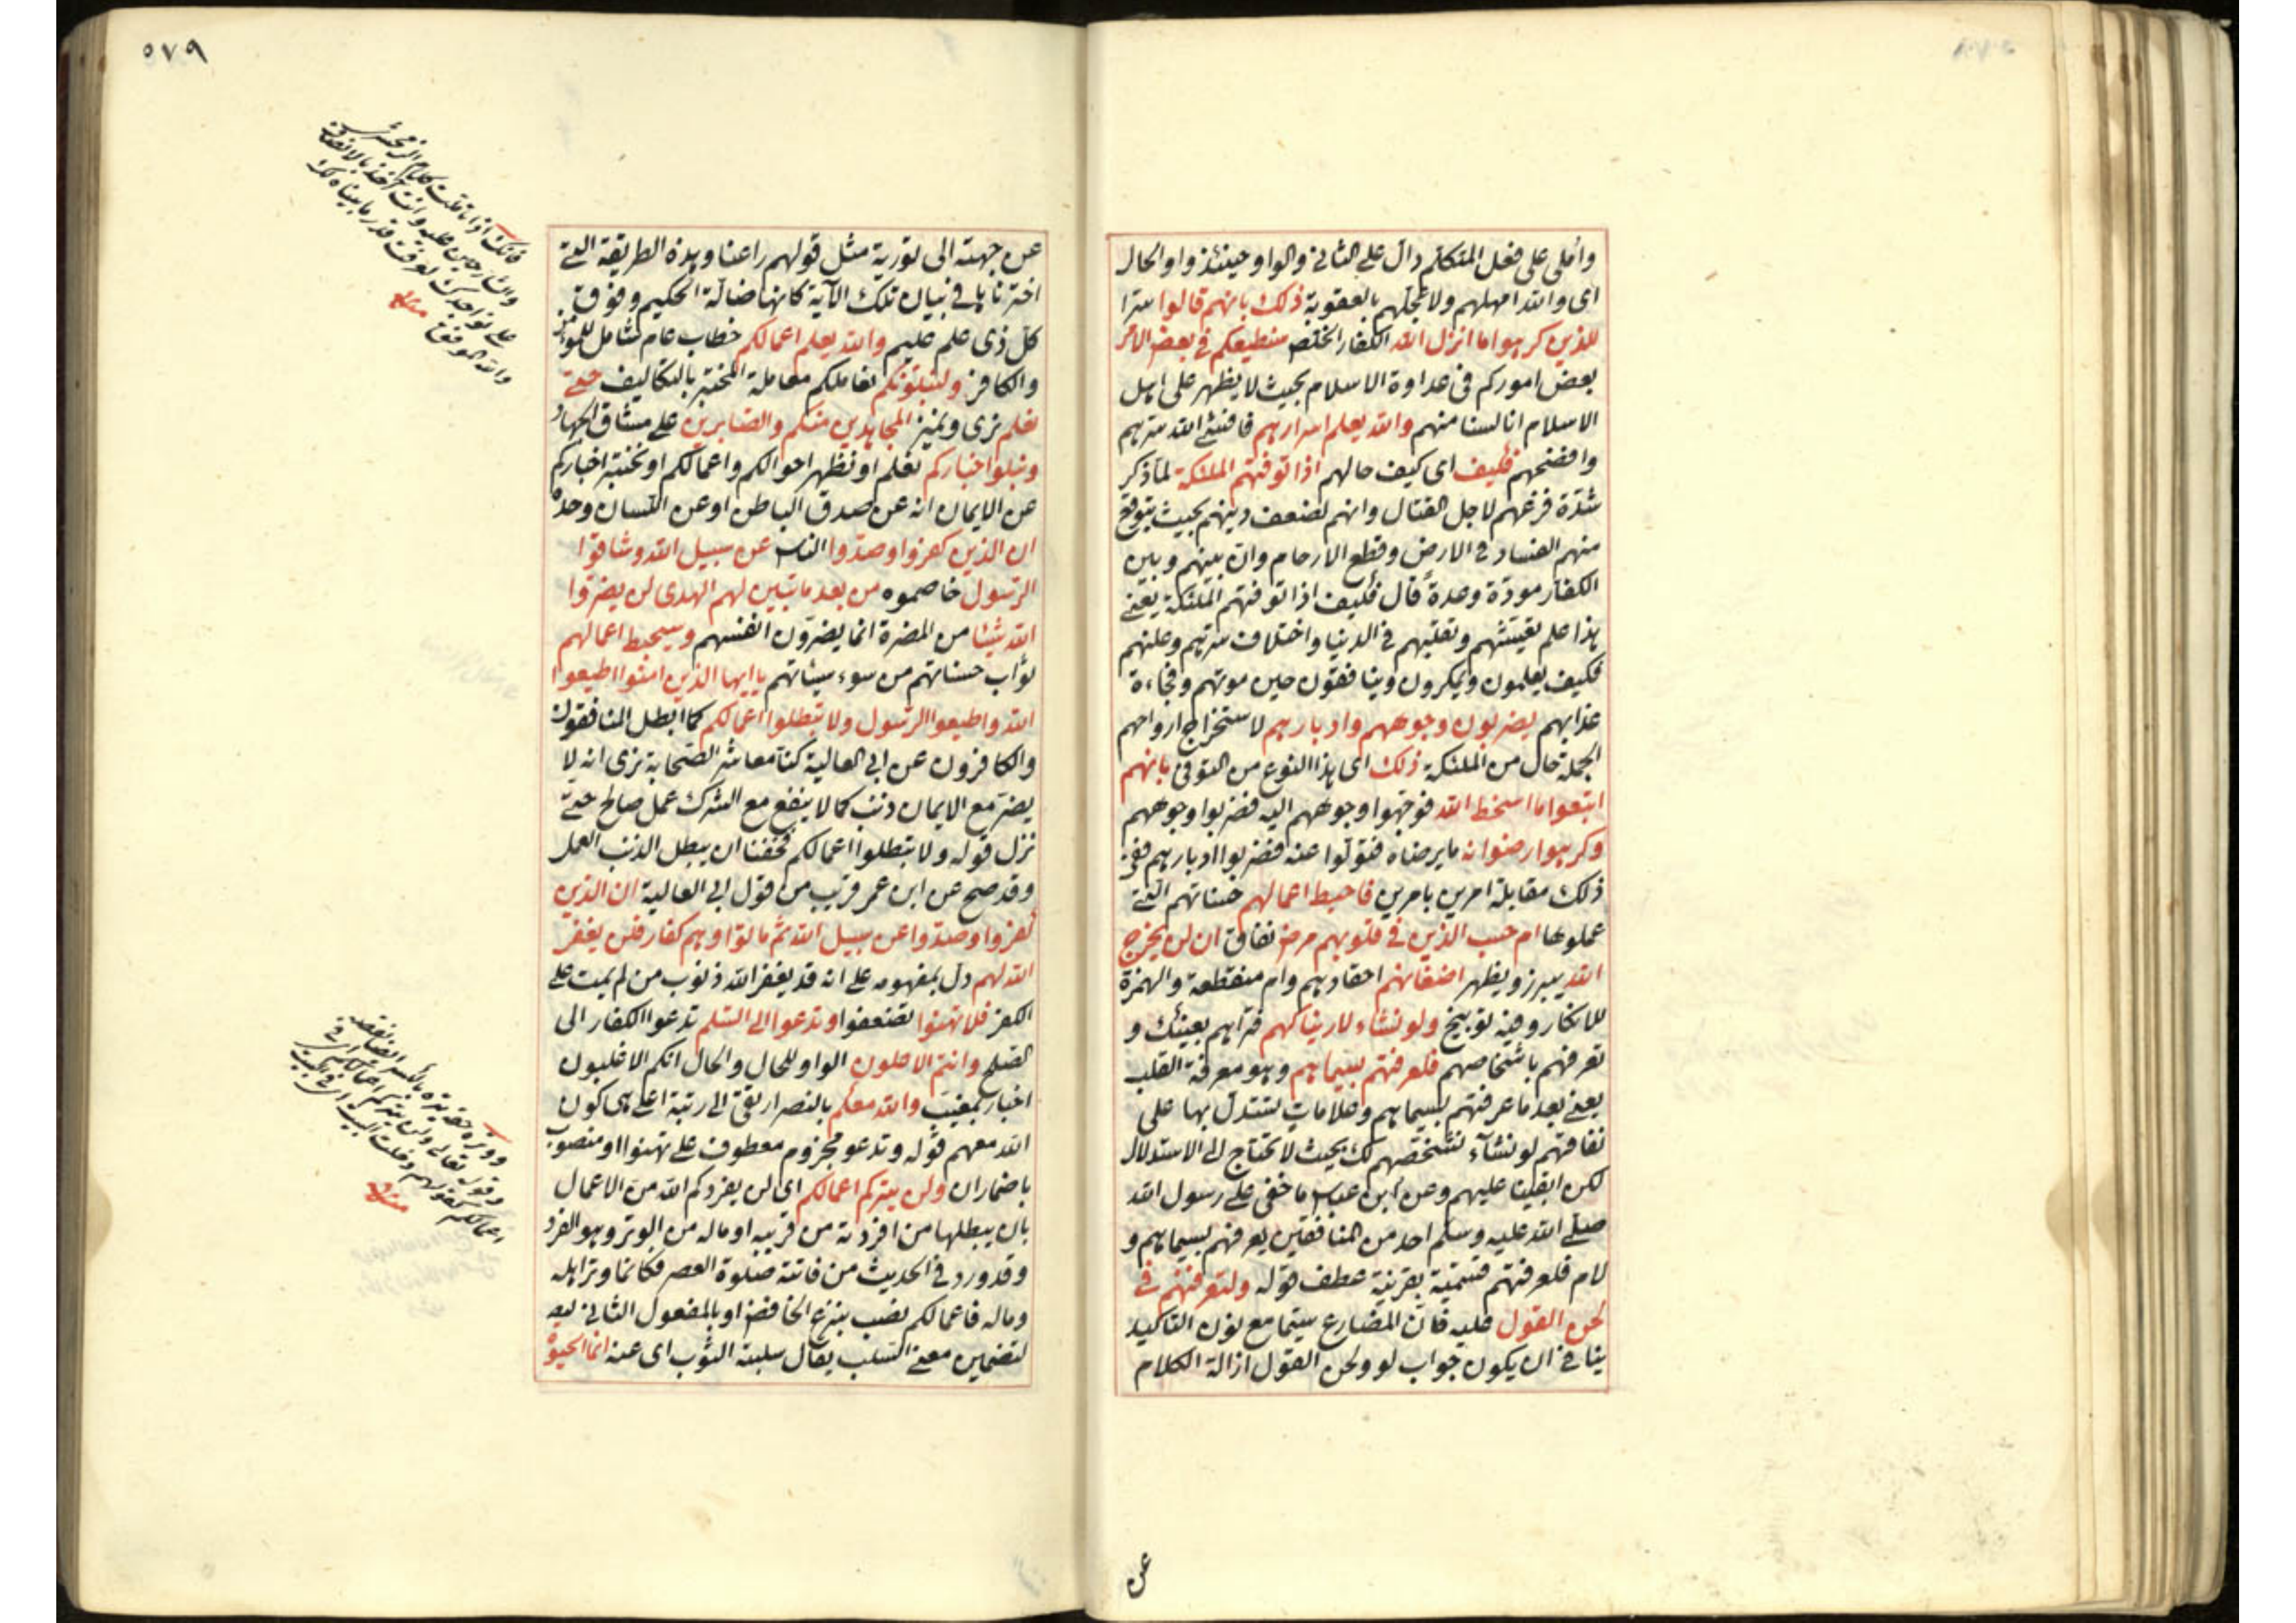 وأملى على فعل المتكلم دال على الثاني والواو حينئذ واو الحال
اى والله امهلهم ولا عجلهم بالعقوبة ذلك بانهم قالوا سرا
للذين كرهوا ما انزل الله الكفار الخلص سنطيعكم في بعض الامر
بعض اموركم في عداوة الاسلام بحيث لا يظهر على اهل
الاسلام انا لسنا منهم والله يعلم اسرارهم فافشى الله سرهم
وافضحهم فكيف اى كيف حالهم اذا توفتهم الملئكة لما ذكر
شدة فزعهم لاجل القتال وانهم لضعف دينهم بحيث يتوقع
منهم الفساد في الارض وقطع الارحام وان بينهم وبين
الكفار مودة وعدة قال فكيف اذا توفتهم الملئكة يعنى
هذا علم تعيشهم وتقلبهم في الدنيا واختلاف سرهم وعلنهم
فكيف يعلمون ويمكرون وينافقون حين موتهم وفجاءة
عذابهم يضربون وجوههم وادبارهم لاستخراج ارواحهم
الجملة حال من الملئكة ذلك اى هذا النوع من التوفى بانهم
اتبعوا ما اسخط الله فوجهوا وجوههم اليه فضربوا وجوههم
وكرهوا رضوانه ما يرضاه فتولوا عنه فضربوا ادبارهم ففى
ذلك مقابلة امرين بامرين فاحبط اعمالهم حسناتهم التى
عملوها ام حسب الذين في قلوبهم مرض نفاق ان لن يخرج
الله يبرز ويظهر اضغانهم احقادهم وام منقطعة والهمزة
للانكار وفيه توبيخ ولو نشاء لاريناكهم فتراهم بعينك و
تعرفهم باشخاصهم فلعرفتهم بسيماهم وهو معرفة القلب
يعنى بعد ما عرفتهم بسيماهم وعلامات تستدل بها على
نفاقهم لو نشآء لشخصهم لك بحيث لا تحتاج الى الاستدلال
لكن ابقينا عليهم وعن ابن عباس ما خفى على رسول الله
صلى الله عليه وسلم احد من المنافقين يعرفهم بسيماهم و
لام فلعرفتهم قسمية بقرينة عطف قوله ولتعرفنهم في
لحن القول عليه فان المضارع سيما مع نون التاكيد
ينافي ان يكون جواب لو ولحن القول ازالة الكلام
عن
٥٧٩
عن جهته الى تورية مثل قولهم راعنا وهذه الطريقة التى
اخترناها في بيان تلك الآية كانها ضالة الحكيم وفوق
كل ذى علم عليم والله يعلم اعمالكم خطاب عام شامل للمؤمن
والكافر ولنبلونكم نعاملكم معاملة المختبر بالتكاليف حتى
نعلم نرى ونميز المجاهدين منكم والصابرين على مشاق الجهاد
ونبلوا اخباركم نعلم او نظهر احوالكم واعمالكم او نختبر اخباركم
عن الايمان انه عن صدق الباطن او عن اللسان وحده
ان الذين كفروا وصدوا الناس عن سبيل الله وشاقوا
الرسول خاصموه من بعد ما تبين لهم الهدى لن يضروا
الله شيئا من المضرة انما يضرون انفسهم وسيحبط اعمالهم
ثواب حسناتهم من سوء سيئاتهم يا ايها الذين امنوا اطيعوا
الله واطيعوا الرسول ولا تبطلوا اعمالكم كما ابطل المنافقون
والكافرون عن ابي العالية كنا معاشر الصحابة نرى انه لا
يضر مع الايمان ذنب كما لا ينفع مع الشرك عمل صالح حتى
نزل قوله ولا تبطلوا اعمالكم فخفنا ان يبطل الذنب العمل
وقد صح عن ابن عمر قريب من قول ابي العالية ان الذين
كفروا وصدوا عن سبيل الله ثم ماتوا وهم كفار فلن يغفر
الله لهم دل بمفهومه على انه قد يغفر الله ذنوب من لم يمت على
الكفر فلا تهنوا تضعفوا وتدعوا الى السلم تدعوا الكفار الى
الصلح وانتم الاعلون الواو للحال والحال انكم الاغلبون
اخبار بمغيب والله معكم بالنصر ارتقى الى رتبة اعلى هى كون
الله معهم قوله وتدعو مجزوم معطوف على تهنوا او منصوب
باضمار ان ولن يتركم اعمالكم اى لن يفردكم الله من الاعمال
بان يبطلها من افردته من قريبه او ماله من الوتر وهو الفرد
وقد ورد في الحديث من فاتته صلوة العصر فكانما وتر اهله
وماله فاعمالكم نصب بنزع الخافض او بالمفعول الثاني ليتر
لتضمين معنى السلب يقال سلبته الثوب اى عنه انما الحيوة
فانك اذا تاملت كلام الزمخشرى
والله الموفق منه